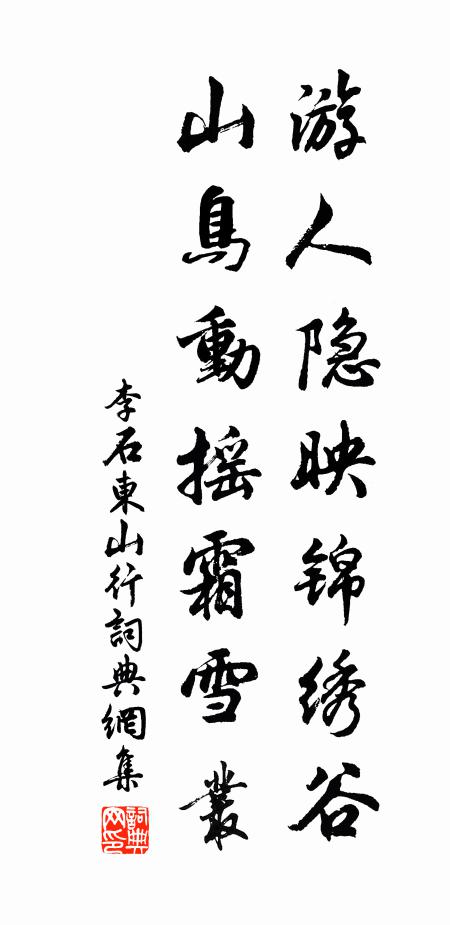 游人隐映锦绣谷
山鳥動摇霜雪叢
李石東山行詞典網集
詞典网印